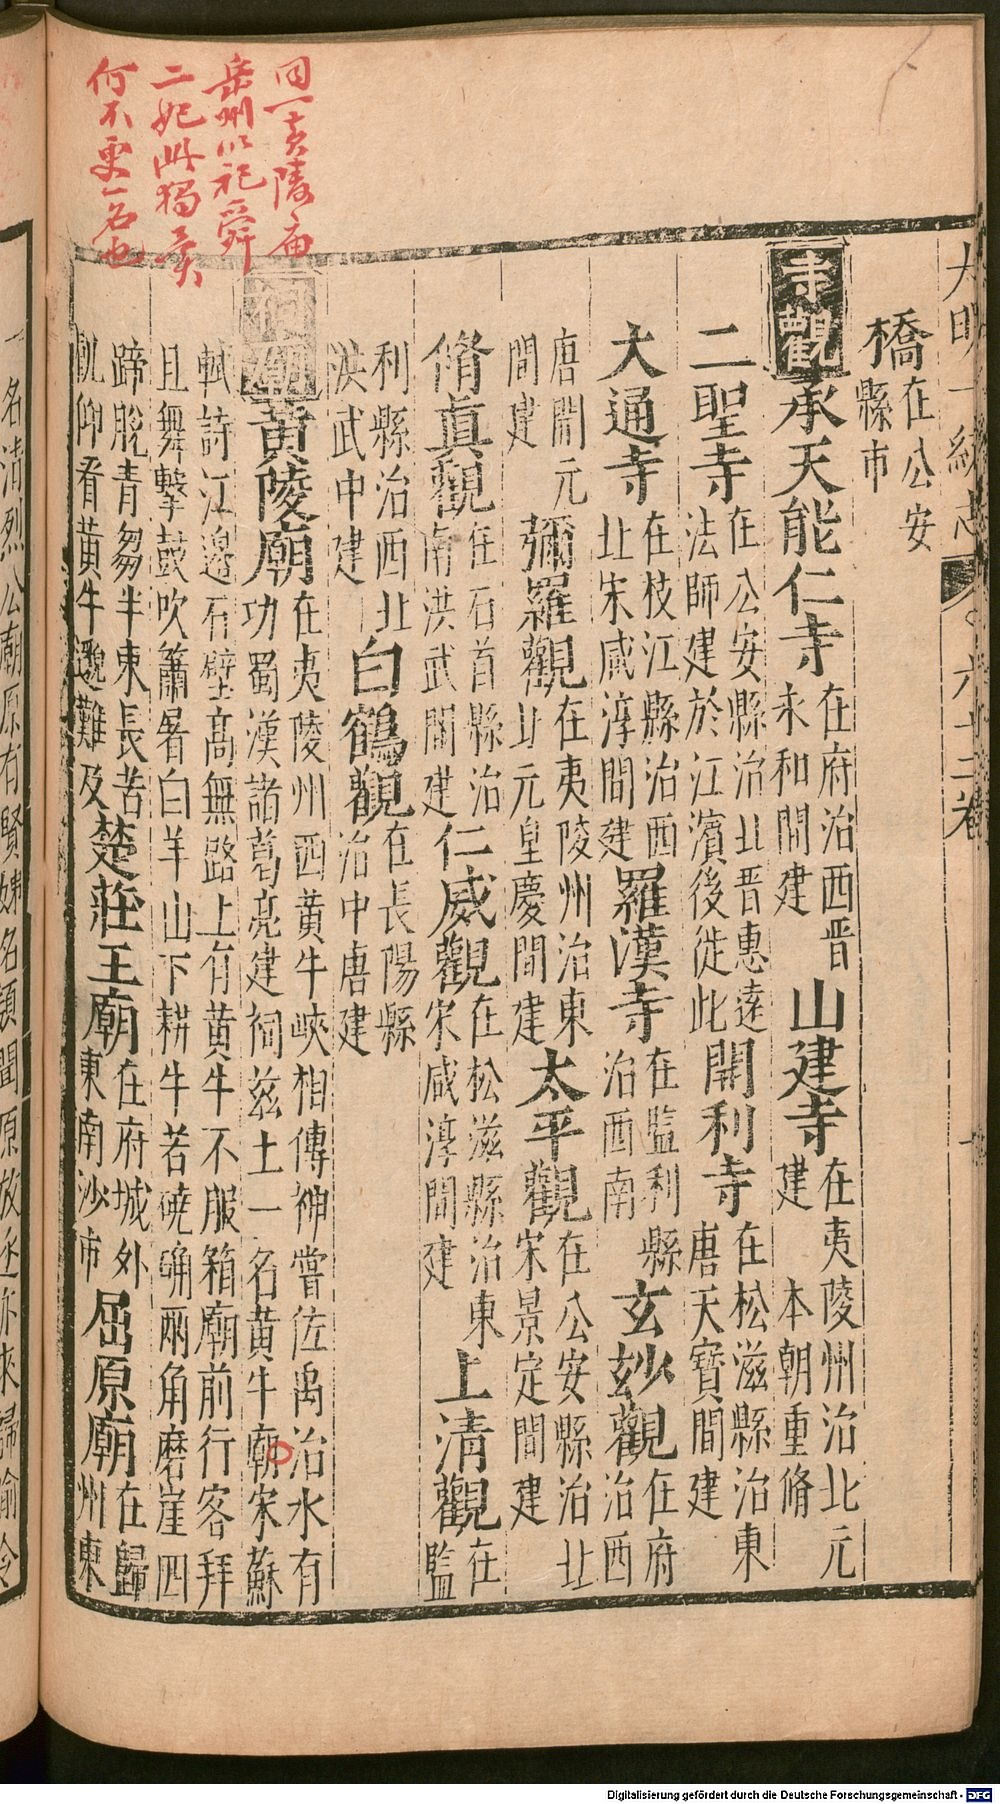 大明一統志 六十二卷
橋在公安縣市
寺觀 承天能仁寺在府治西晉永和間建 山建寺在夷陵州治北元建 本朝重脩
二聖寺在公安縣治北晉惠遠法師建於江濱後徙此 開利寺在松滋縣治東唐天寶間建
大通寺在枝江縣治西北宋咸淳間建 羅漢寺在監利縣治西南 玄妙觀在府治西
唐開元間建 彌羅觀在夷陵州治東北元皇慶間建 太平觀在公安縣治北宋景定間建
脩真觀在石首縣治南洪武間建 仁威觀在松滋縣治東宋咸淳間建 上清觀在監
利縣治西北洪武中建 白鶴觀在長陽縣治中唐建
祠廟 黃陵廟在夷陵州西黃牛峽相傳神嘗佐禹治水有功蜀漢諸葛亮建祠兹土一名黃牛廟宋蘇
軾詩江邊石壁高無路上有黃牛不服箱廟前行客拜且舞擊鼓吹簫屠白羊山下耕牛苦磽确兩角磨崖四
蹄脫青芻半束長苦飢仰看黃牛邈難及 楚莊王廟在府城外東南沙市 屈原廟在歸州東
同一黃陵廟
岳州以祀舜
二妃此獨異
何不更一名也
一名清烈公廟原有賢姊名嬃聞原放逐亦來歸喻令
Digitalisierung gefördert durch die Deutsche Forschungsgemeinschaft - DFG